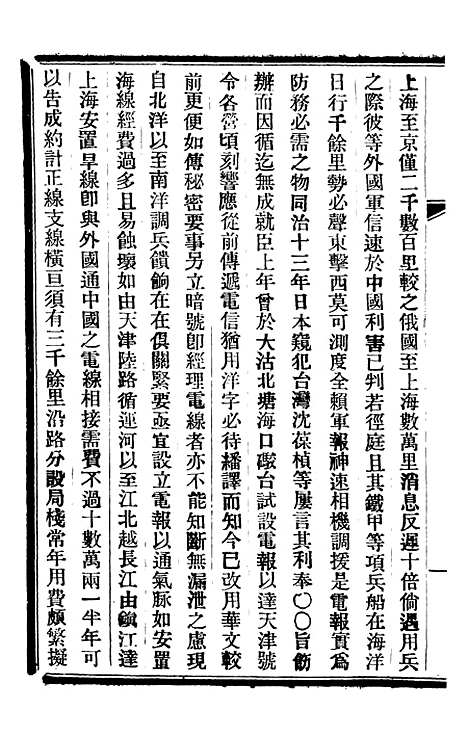 上海至京僅二千數百里較之俄國至上海數萬里消息反遲十倍倘遇用兵
之際彼等外國軍信速於中國利害已判若徑庭且其鐵甲等項兵船在海洋
日行千餘里勢必聲東擊西莫可測度全賴軍報神速相機調援是電報實爲
防務必需之物同治十三年日本窺犯台灣沈葆楨等屢言其利奉〇〇旨飭
辦而因循迄無成就臣上年曾於大沽北塘海口礮台試設電報以達天津號
令各營頃刻響應從前傳遞電信猶用洋字必待繙譯而知今已改用華文較
前更便如傳秘密要事另立暗號卽經理電線者亦不能知斷無漏泄之慮現
自北洋以至南洋調兵饋餉在在俱關緊要亟宜設立電報以通氣脉如安置
海線經費過多且易蝕壞如由天津陸路循運河以至江北越長江由鎭江達
上海安置旱線卽與外國通中國之電線相接需費不過十數萬兩一半年可
以告成約計正線支線橫亘須有三千餘里沿路分設局棧常年用費頗繁擬